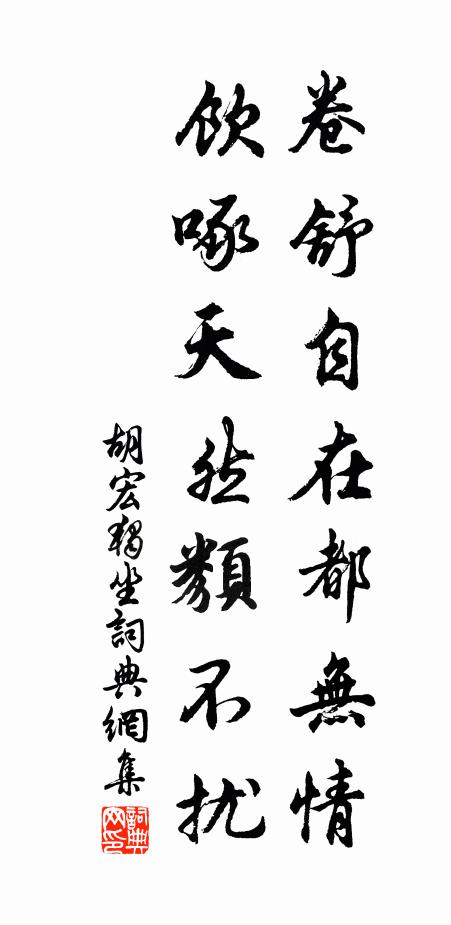 卷舒自在都無情
飲啄天然類不扰
胡宏獨坐詞典網集
詞典网印